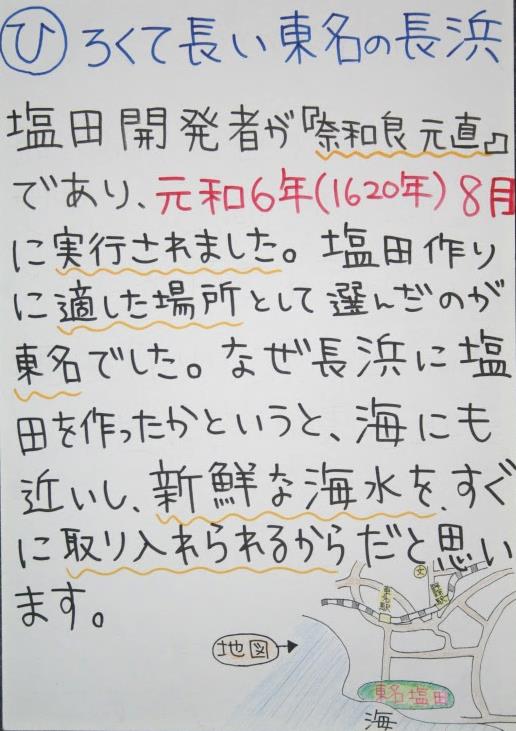 ひろくて長い東名の長浜
塩田開発者が『奈和良元直』
であり、元和6年(1620年)8月
に実行されました。塩田作り
に適した場所として選んだのが
東名でした。なぜ長浜に塩
田を作ったかというと、海にも
近いし、新鮮な海水を、すぐ
に取り入れられるからだと思い
ます。
文
東名駅
野蒜駅
地図
東名塩田
海